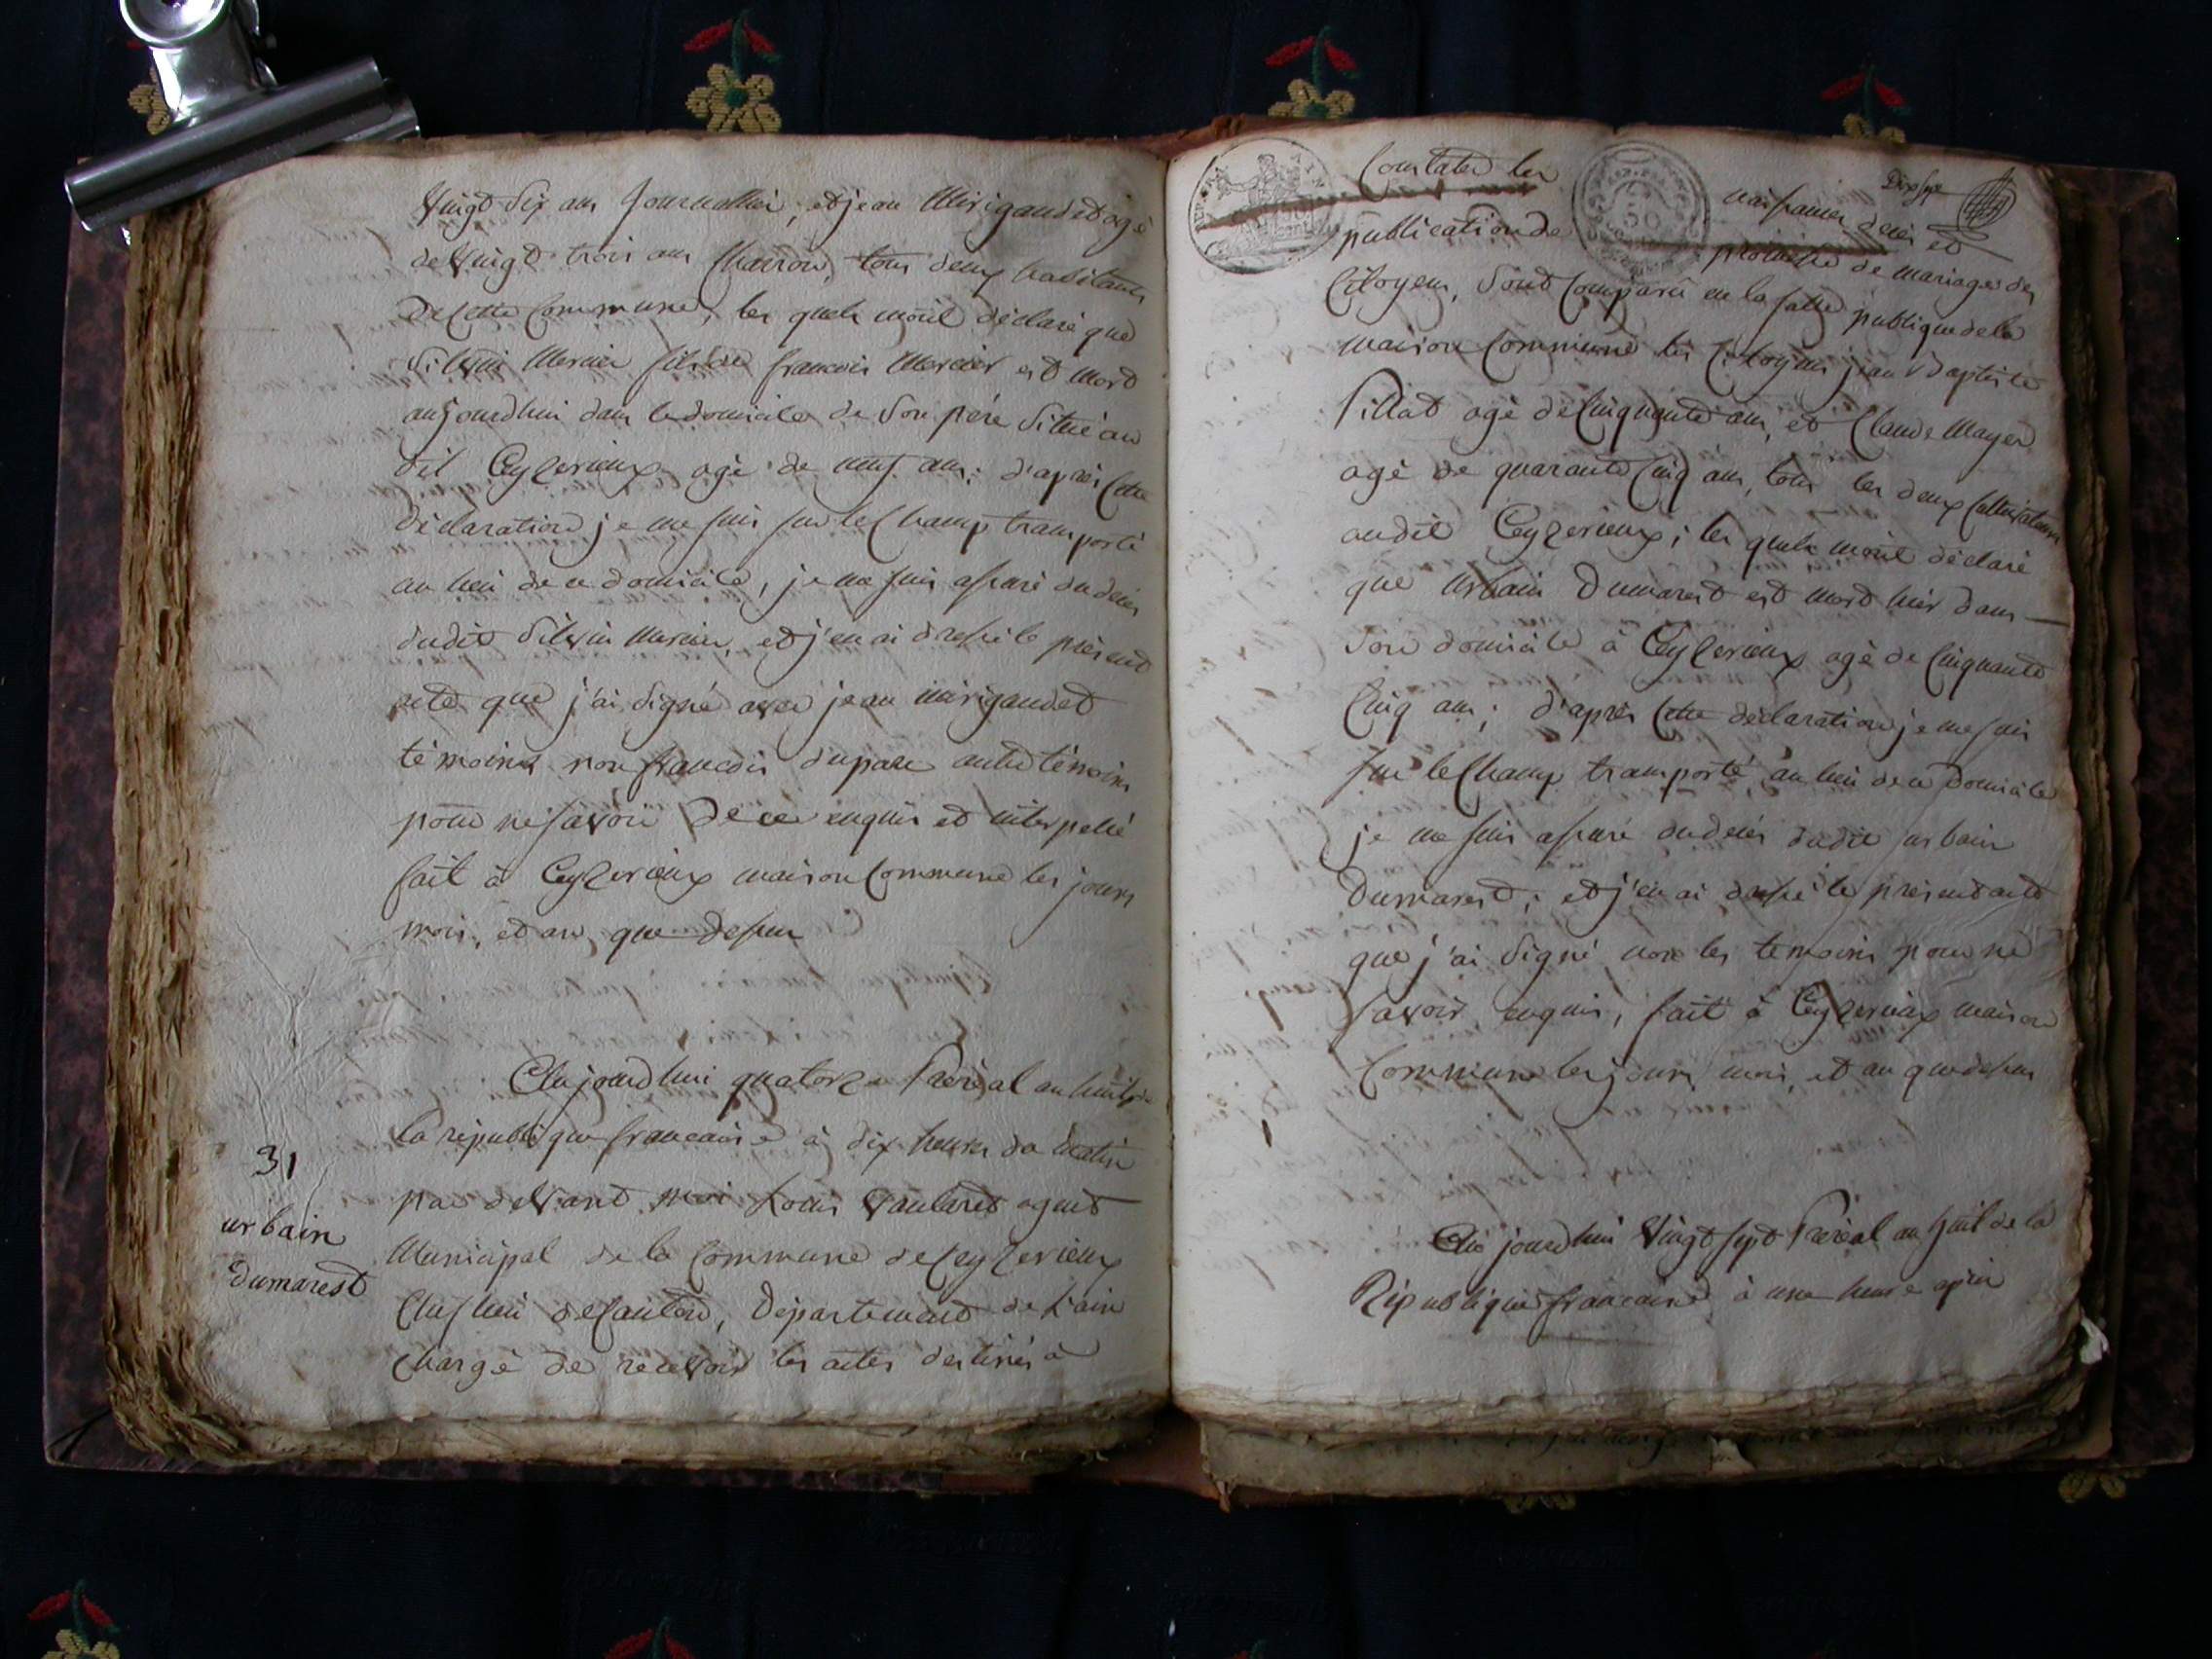 Vingt Six ans Journallier, et jean Mirigaudet agé
de Vingt trois ans Charron, tous deux habitants
De Cette Commune, les quels m'ont déclaré que
Silvin Mercier fils de francois Mercier est Mort
aujourdhui dans le domicile de Son père Situé au
dit Ceyzerieux agé de neuf ans; d'après Cette
déclaration je me suis sur le Champ transporté
au lieu de ce domicile, je me suis assuré du décès
dudit Silvin Mercier, et j'en ai dressé le présent
acte que j'ai Signé avec jean mirigaudet
témoins non francois duparc autre témoins
pour ne savoir De ce enquis et interpellé
fait à Ceyzerieux maison Commune les jours
mois, et an que dessus
Aujourdhui quatorze Prérial an huit de
la république francaise à dix heures du Matin
31
par deVant moi Louis Vaularet agent
urbain
Municipal de la Commune de Ceyzerieux
dumarest
Chef lieu de Canton, Département de L'ain
Chargé de recevoir les actes destinés à
Dix sept
Constater les naissances décès et
publication de promesse de mariages des
Citoyens, Sont Comparu en la salle publique de la
maison Commune les Citoyens jean Baptiste
Pillat agé de Cinquante ans, et Claude Mayer
agé de quarante Cinq ans, tous les deux Cultivateurs
audit Ceyzerieux; les quels m'ont déclaré
que Urbain Dumarest est mort hier dans
Son domicile à Ceyzerieux agé de Cinquante
Cinq ans; d'après Cette déclaration je me suis
sur le Champ transporté au lieu de ce Domicile
je me suis assuré du décès dudit urbain
Dumarest; et j'en ai dressé le présent acte
que j'ai Signé non les temoins pour ne
savoir enquis, fait à Ceyzerieux maison
Commune les jours mois, et an que dessus
Aujourdhui Vingt sept Prérial an huit de la
République francaise à une heure après